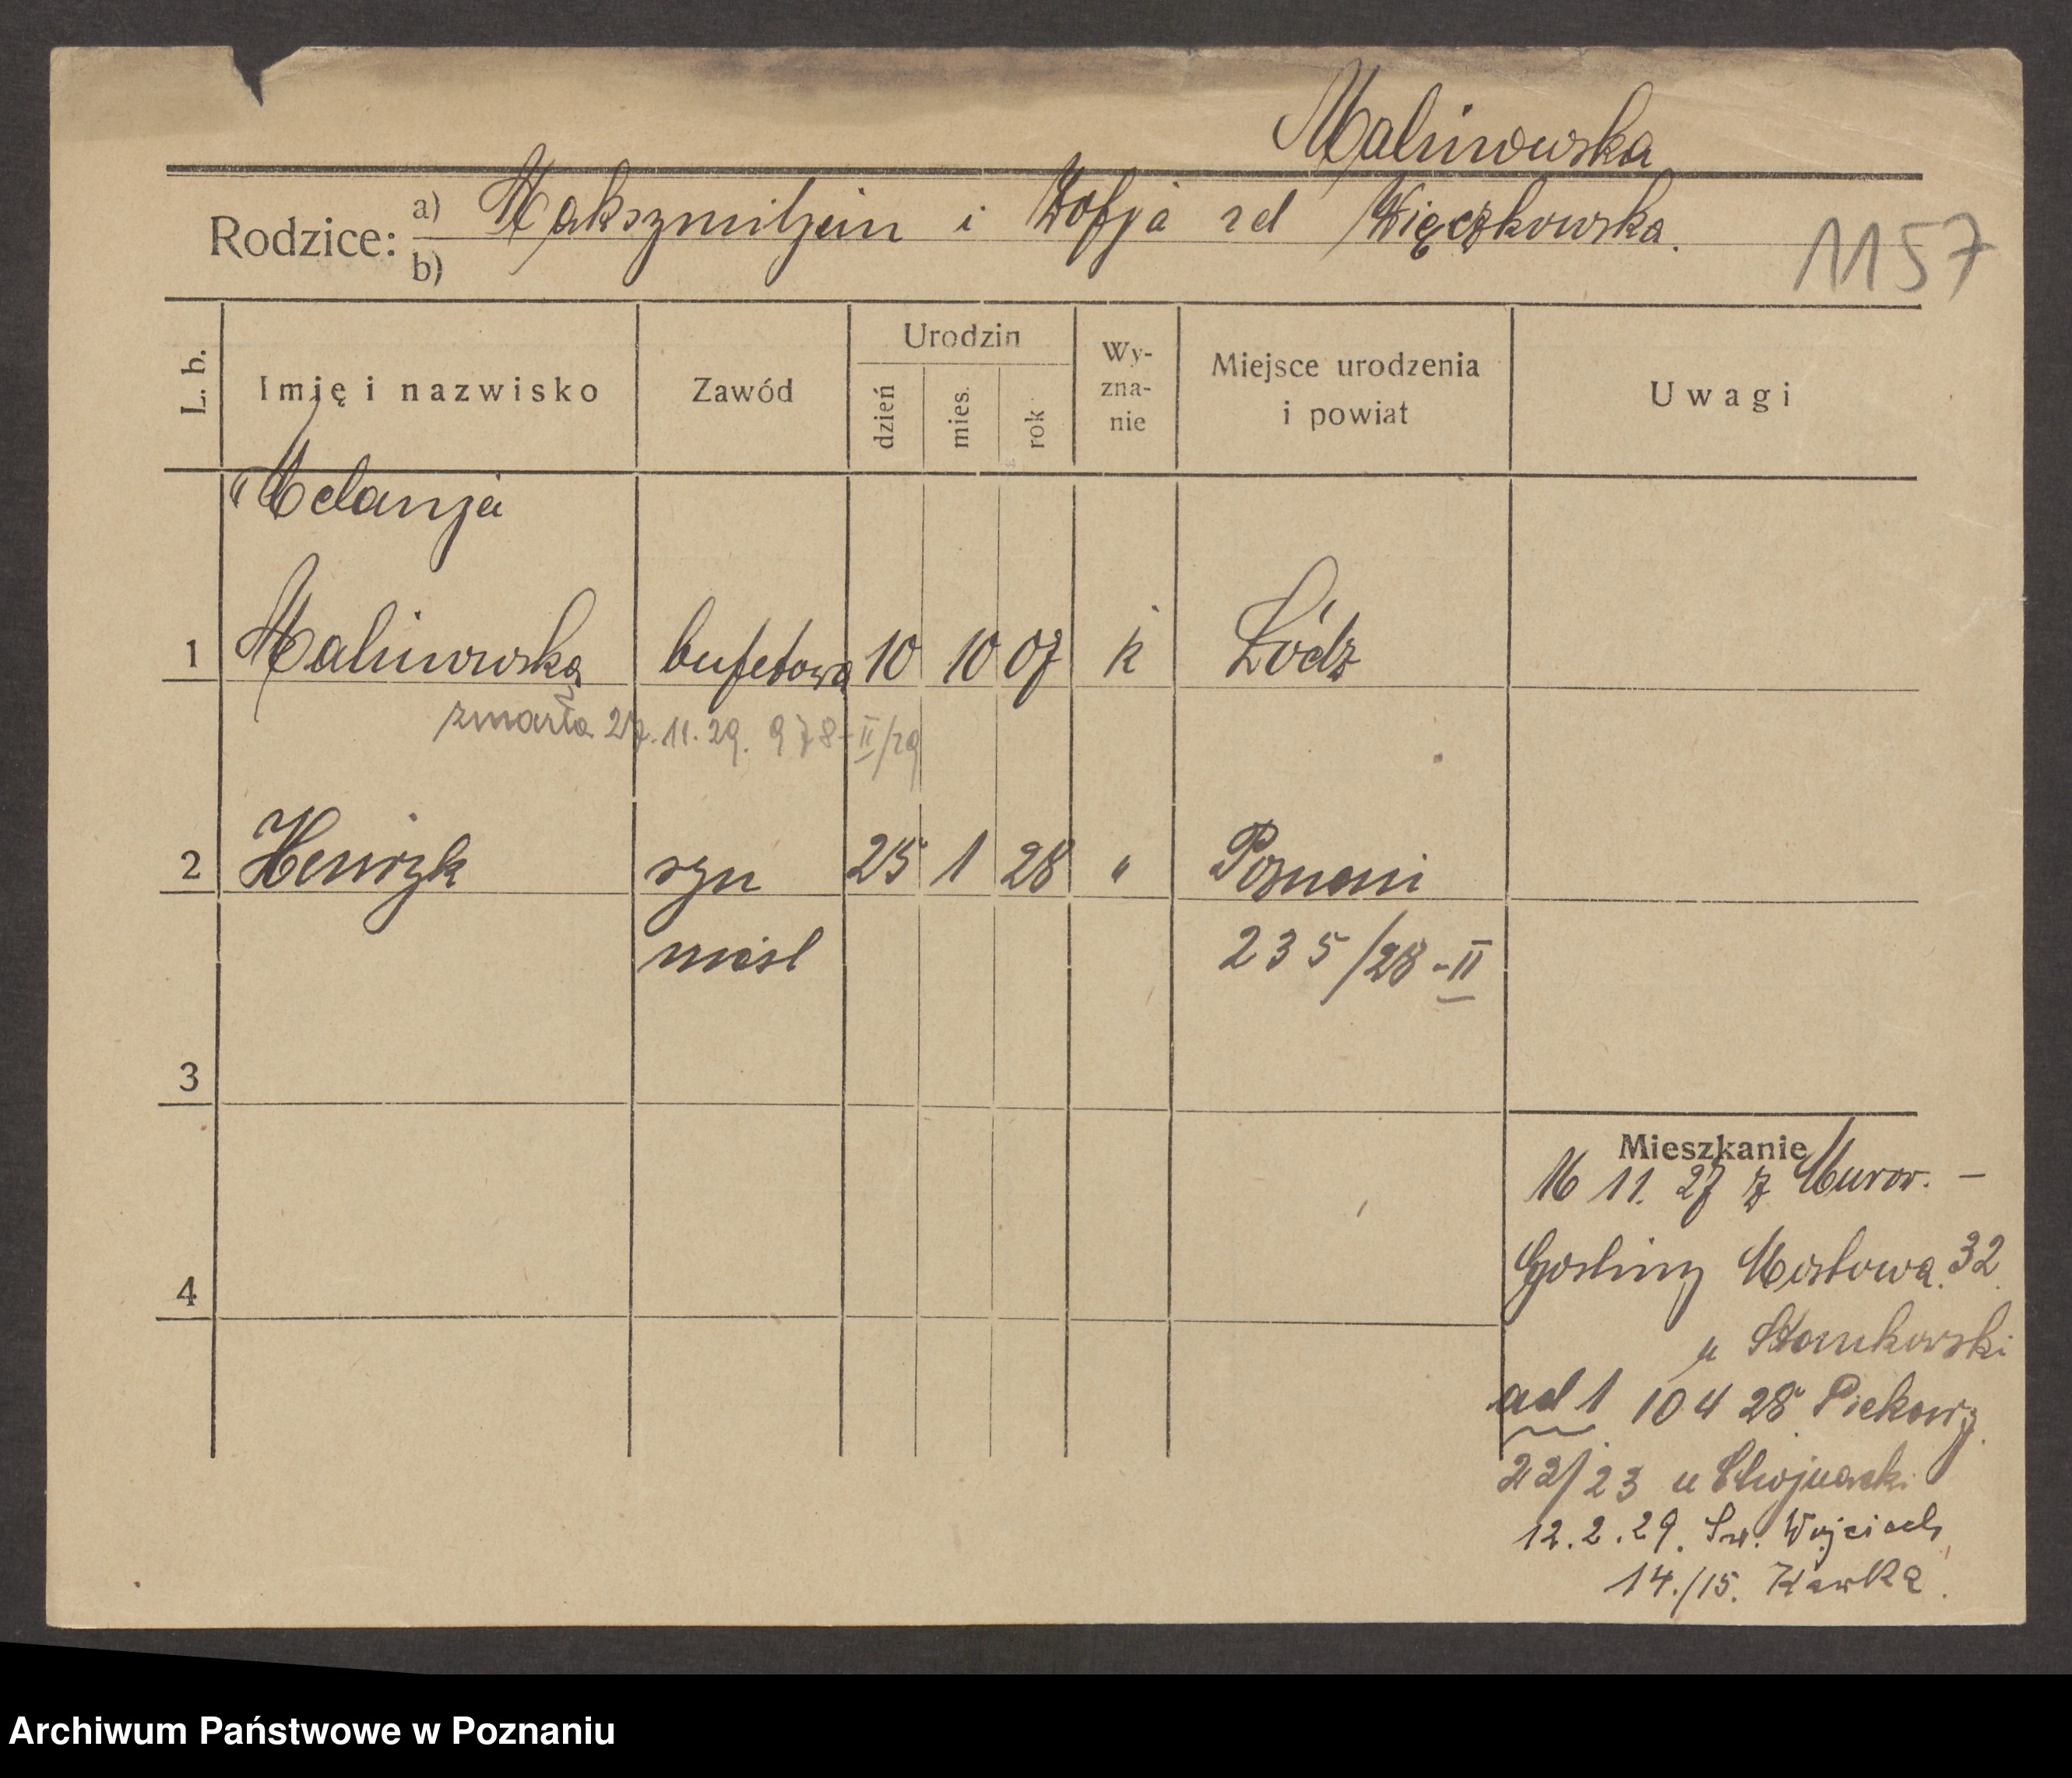 Malinowska
Rodzice: a) Makszmiljan i Zofja zd Więczkowska.
b)
1157
L. b.
Imię i nazwisko
Zawód
Urodzin
dzień
mies.
rok
Wy-
zna-
nie
Miejsce urodzenia
i powiat
Uwagi
Melanja
1 Malinowska bufetowa 10 10 07 k Łódz
zmarła 27. 11. 29. 978-II/29
2 Henryk syn 25 1 28 " Poznań
nieśl 235/28-II
3
Mieszkanie
16 11. 27 z Murow. -
4
Gośliny Mostowa 32
u
ad 1 10 4 28 Piekary
22/23 u Chojnacki
12.2.29. Św. Wojciech
14./15. Kawka.
Archiwum Państwowe w Poznaniu